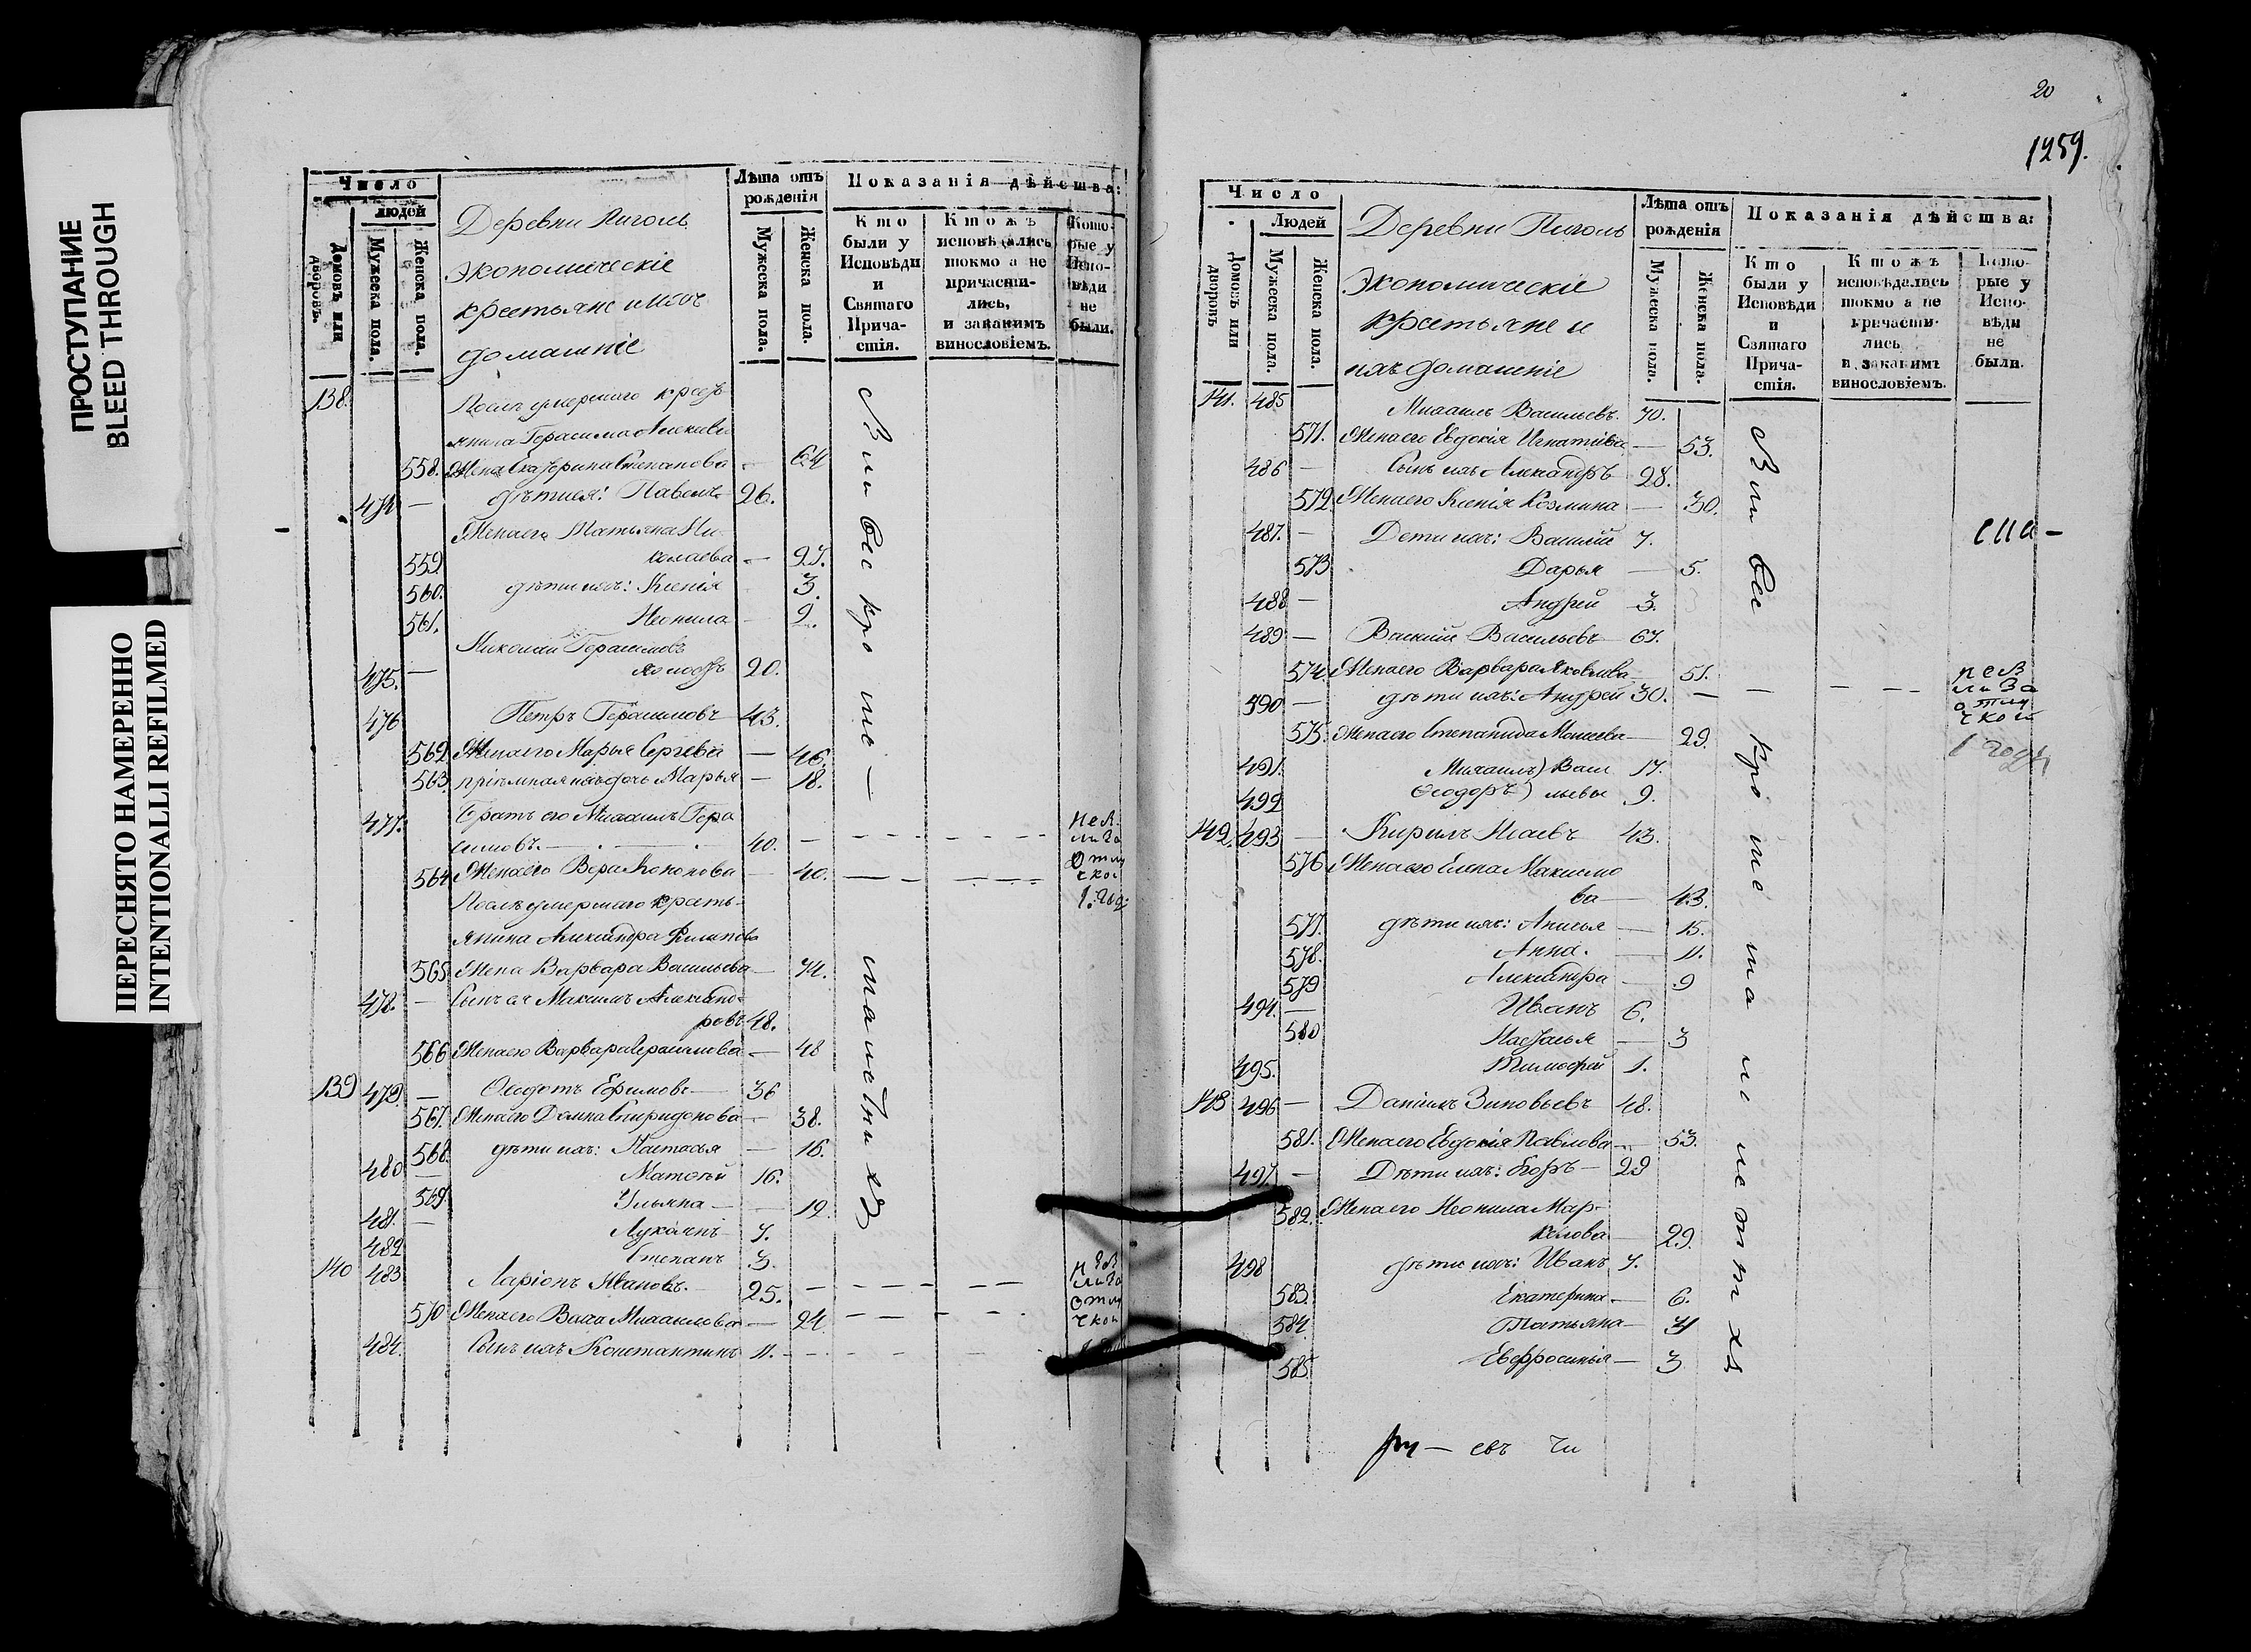 ПРОСТУПАНИЕ
BLEED THROUGH
ПЕРЕСНЯТО НАМЕРЕННО
INTENTIONALLI REFILMED
Число
людей
Домовъ или дворовъ.
Мужеска пола.
Женска пола.
Деревни Пиголь
экономическіе
крестьяне и ихъ
домашніе
Лѣта отъ рожденія
Мужеска пола.
Женска пола.
Показанія дѣйства:
Кто были у Исповѣди и Святаго Причастія.
Ктожъ исповѣдались токмо а не причастились, и закакимъ винословіемъ.
Которые у Исповѣди не были.
138.
Послѣ умершаго кресть
янина Герасима Алексѣева
558. Жена Екатерина Степанова — 64
474 — дѣти ея: Павелъ 26.
Жена его Татьяна Ни
559 колаева — 27.
560. дѣти ихъ: Ксенія 3.
561. Неонила — 2.
Николай Герасимовъ
475. — холостъ 20.
476 Петръ Герасимовъ 43.
562 Жена его Марья Сергѣева — 46.
563. пріемная ихъ дочь Марья — 18.
477. Братъ его Михаилъ Гера
симовъ. 40. —
564 Жена его Вера Кононова — 40. —
Послѣ умершаго кресть-
янина Александра Филипова
565 Жена Варвара Васильева — 74.
478. — Сынъ ея Максимъ Александ-
ровъ 48.
566 Жена его Варвара Герасимова — 48
139 479 — Ѳедотъ Ефимовъ — 36
567. Жена его Домна Спиридонова — 38.
568. дѣти ихъ: Настасья — 16.
480 — Матвѣй 16.
569. Ульяна — 12.
481. — Лукіянъ 7.
482 Степанъ 3.
140 483 Ларіонъ Ивановъ. 25. —
570 Жена его Васса Михаилова — 24.
484. Сынъ ихъ Константинъ 11. —
20
1259.
Число
Людей
Домовъ или дворовъ
Мужеска пола.
Женска пола.
Деревни Пиголь
Экономическіе
крестьяне и
ихъ домашніе
Лѣта отъ рожденія
Мужеска пола.
Женска пола.
Показанія дѣйства:
Кто были у Исповѣди и Святаго Причастія.
Ктожъ исповѣдались токмо а не причастились и закакимъ винословіемъ.
Которые у Исповѣди не были.
141. 485 Михаилъ Васильевъ. 70.
571. Жена его Евдокія Игнатіева — 53.
486 — Сынъ ихъ Александръ 28.
572 Жена его Ксенія Козмина — 30.
487. — Дети ихъ: Василій 7.
573 Дарья — 5.
488 — Андрей 3.
489 — Василій Васильевъ 67.
574 Жена его Варвара Яковлева — 51.
490 — дѣти ихъ: Андрей 30. —
575. Жена его Степанида Моисеева — 29.
491. Михаилъ) Васи 17.
492 Ѳеодоръ) льевы 9.
142. 493 — Кирилъ Исаевъ 43.
576 Жена его Елена Максимо
ва — 43.
577. дѣти ихъ: Анисья — 15.
578. Анна. — 11.
579 Александра — 9
494. — Иванъ 6.
580 Настасья — 3
495. Тимофей 1.
143 496 — Даніилъ Зиновьевъ 48.
581. Жена его Евдокія Павлова — 53.
497. — Дѣти ихъ: Егоръ — 29
582. Жена его Неонила Мар-
келова — 29.
498 дѣти ихъ: Иванъ 7.
583. Екатерина — 6.
584. Татьяна — 4
585. Евфросинья — 3